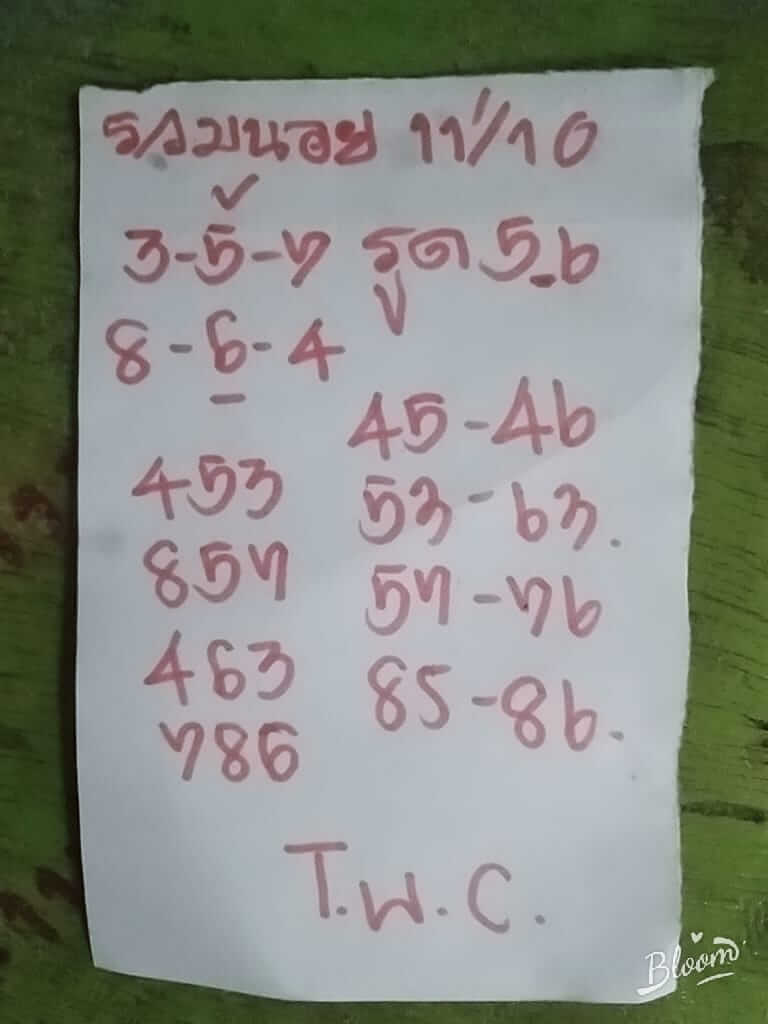 รวมนอย 11/10
3-5-7 รูด 5-6
8-6-4
45-46
453
53-63.
857
57-76
463
85-86.
786
T.W.C.
Bloom